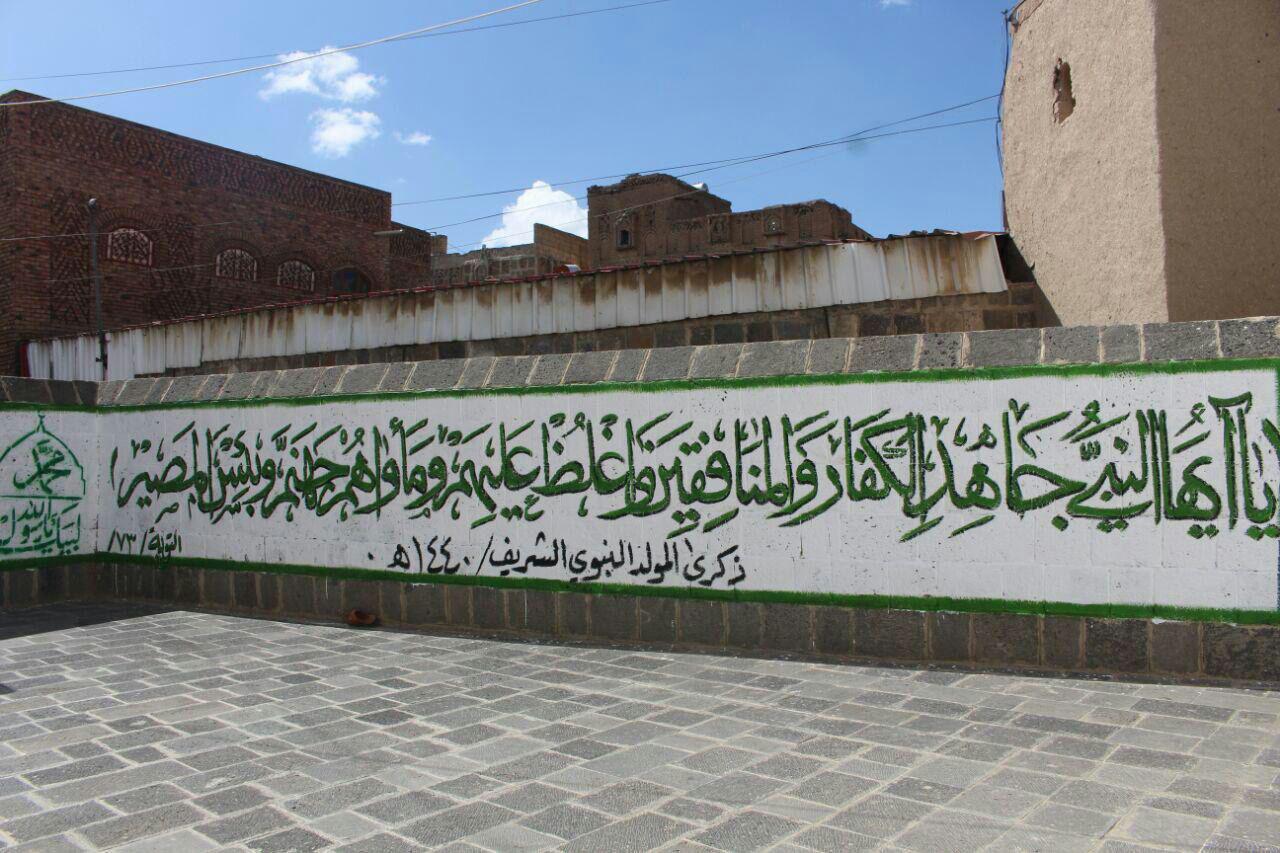 يا أيها النبي جاهد الكفار والمنافقين واغلظ عليهم ومأواهم جهنم وبئس المصير
التوبة/٧٣
ذكرى المولد النبوي الشريف/١٤٤٠هـ
محمد
لبيك يا رسول الله